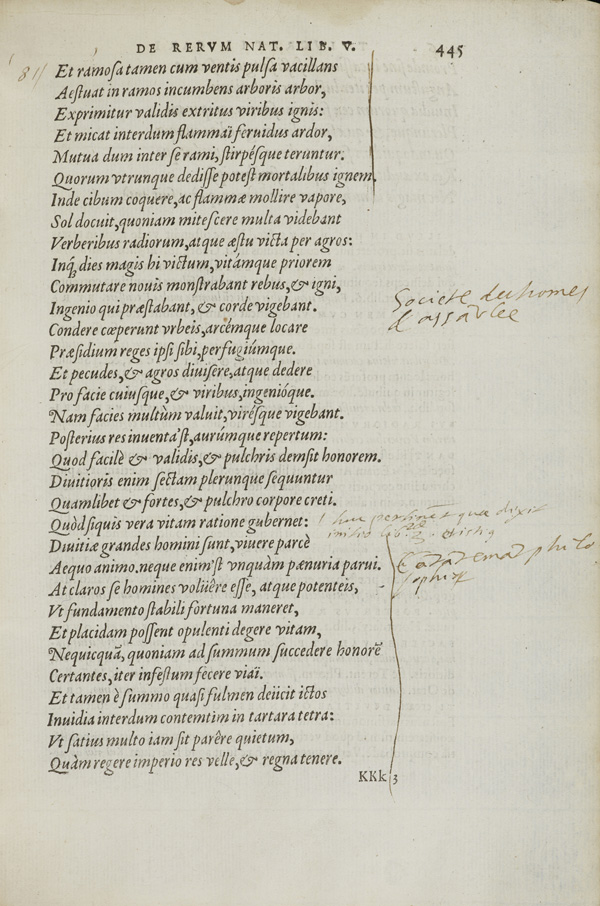 DE RERVM NAT. LIB. V. 445
Et ramosa tamen cum ventis pulsa vacillans
Aestuat in ramos incumbens arboris arbor,
Exprimitur validis extritus viribus ignis:
Et micat interdum flammaï feruidus ardor,
Mutua dum inter se rami, stirpésque teruntur.
Quorum vtrunque dedisse potest mortalibus ignem.
Inde cibum coquere, ac flammæ mollire vapore,
Sol docuit, quoniam mitescere multa videbant
Verberibus radiorum, atque æstu victa per agros:
Inq́; dies magis hi victum, vitámque priorem
Commutare nouis monstrabant rebus, & igni,
Ingenio qui præstabant, & corde vigebant.
Societe des homes
Condere cœperunt vrbeis, arcémque locare
Præsidium reges ipsi sibi, perfugiúmque.
Et pecudes, & agros diuisere, atque dedere
Pro facie cuiusque, & viribus, ingenióque.
Nam facies multùm valuit, virésque vigebant.
Posterius res inuenta'st, aurúmque repertum:
Quod facilè & validis, & pulchris demsit honorem.
Diuitioris enim sectam plerunque sequuntur
Quamlibet & fortes, & pulchro corpore creti.
Quòd siquis vera vitam ratione gubernet:
huc pertinet quæ dixit
initio lib. 2.
Diuitiæ grandes homini sunt, viuere parcè
Aequo animo. neque enim'st vnquàm pænuria parui.
philosophiæ
At claros se homines voluêre esse, atque potenteis,
Vt fundamento stabili fortuna maneret,
Et placidam possent opulenti degere vitam,
Nequicquā, quoniam ad summum succedere honorē
Certantes, iter infestum fecere viaï.
Et tamen è summo quasi fulmen deiicit ictos
Inuidia interdum contemtim in tartara tetra:
Vt satius multo iam sit parêre quietum,
Quàm regere imperio res velle, & regna tenere.
KKk 3